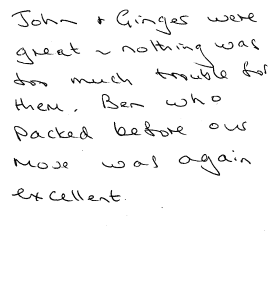 John + Ginger were
great ~ nothing was
too much trouble for
them. Ben who
packed before our
move was again
excellent.